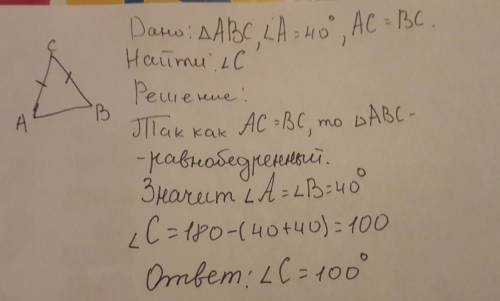 C
A
B
Дано: △ABC, ∠A = 40°, AC = BC.
Найти: ∠C
Решение:
Так как AC = BC, то △ABC -
- равнобедренный.
Значит ∠A = ∠B = 40°
∠C = 180 - (40 + 40) = 100
Ответ: ∠C = 100°